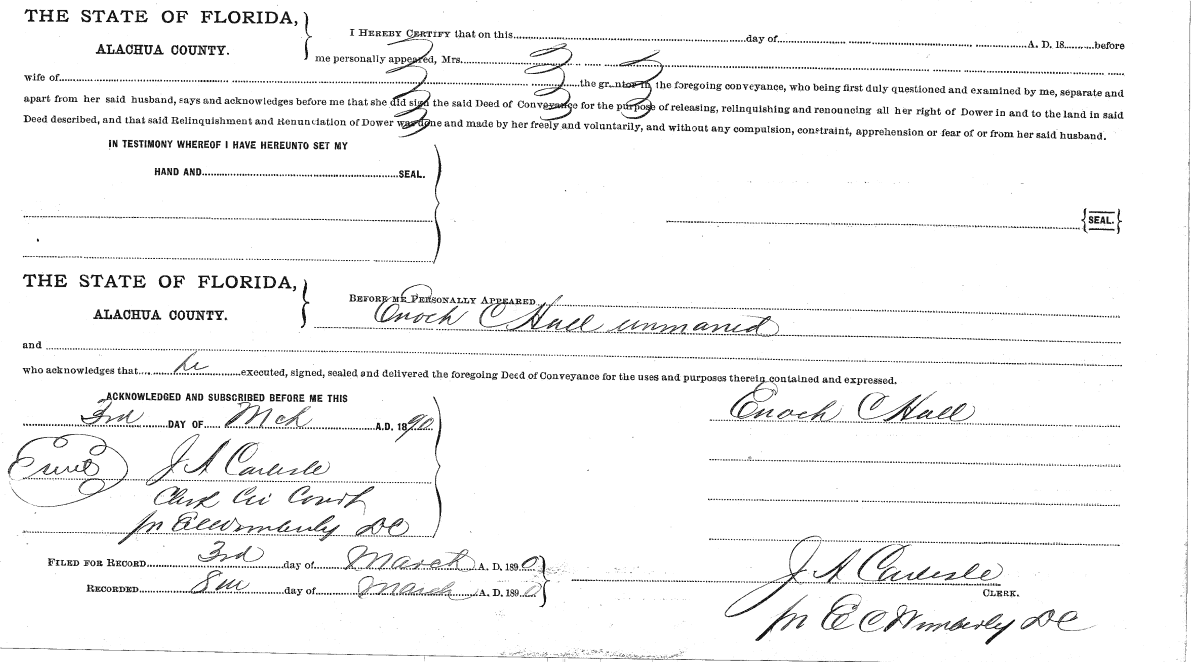 THE STATE OF FLORIDA,
ALACHUA COUNTY.
I HEREBY CERTIFY that on this day of A. D. 18 before
me personally appeared, Mrs.
wife of the grantor in the foregoing conveyance, who being first duly questioned and examined by me, separate and
apart from her said husband, says and acknowledges before me that she did sign the said Deed of Conveyance for the purpose of releasing, relinquishing and renouncing all her right of Dower in and to the land in said
Deed described, and that said Relinquishment and Renunciation of Dower was done and made by her freely and voluntarily, and without any compulsion, constraint, apprehension or fear of or from her said husband.
IN TESTIMONY WHEREOF I HAVE HEREUNTO SET MY
HAND AND SEAL.
SEAL.
THE STATE OF FLORIDA,
ALACHUA COUNTY.
BEFORE ME PERSONALLY APPEARED
Enoch C Hall unmaried
and
who acknowledges that he executed, signed, sealed and delivered the foregoing Deed of Conveyance for the uses and purposes therein contained and expressed.
ACKNOWLEDGED AND SUBSCRIBED BEFORE ME THIS
3rd DAY OF Mch A.D. 1890
Enoch C Hall
J A Carlisle
Clerk Cir Court
pr E C Wimberly DC
FILED FOR RECORD 3rd day of March A. D. 1890
RECORDED 8th day of March A. D. 1890
J A Carlisle
CLERK.
pr E C Wimberly DC